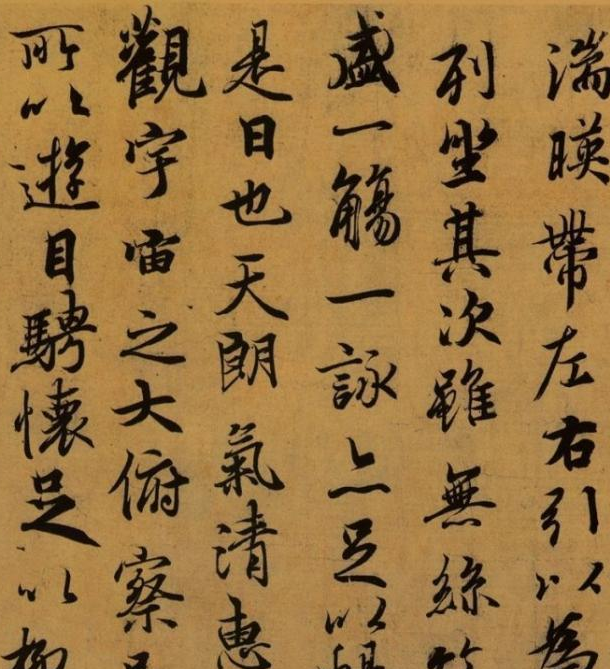 湍暎帶左右引以為
列坐其次雖無絲
盛一觴一詠亦足以
是日也天朗氣清惠
觀宇宙之大俯察
所以遊目騁懷足以